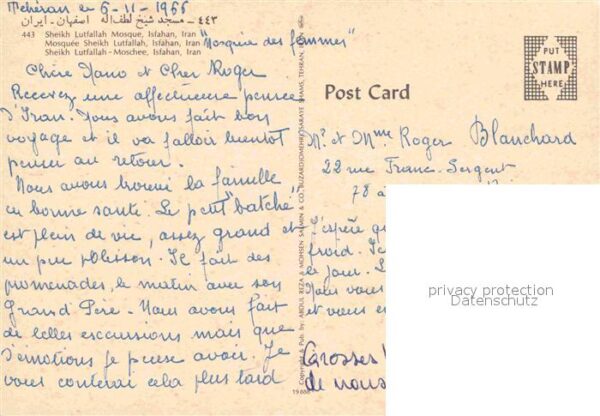 Téhéran le 6-11-1966
۴۴۳ - مسجد شیخ لطف‌الله اصفهان - ایران
443 Sheikh Lutfallah Mosque, Isfahan, Iran
Mosquée Sheikh Lutfallah, Isfahan, Iran
Sheikh Lutfallah-Moschee, Isfahan, Iran
"Mosquée des femmes"
Chère Nano et Cher Roger
Recevez une affectueuse pensée
d'Iran. Nous avons fait bon
voyage et il va falloir bientôt
penser au retour.
Nous avons trouvé la famille
en bonne santé. Le petit "batché"
est plein de vie, assez grand et
un peu polisson. Il fait des
promenades, le matin avec son
Grand Père. Nous avons fait
de belles excursions mais que
d'émotions je pense avoir. Je
vous conterai cela plus tard
Copyright & Pub. by: ABDUL REZA & MOHSEN SALMIN & CO. BUZARDJOMEHRI SARAYE SHAMS, TEHRAN,
19666
Post Card
PUT
STAMP
HERE
Mr et Mme Roger Blanchard
22 rue Franc-Sergent
78
J'espère
froid. Je
le jour. L
Nous vous
et vous
Grosses
de nous
privacy protection
Datenschutz